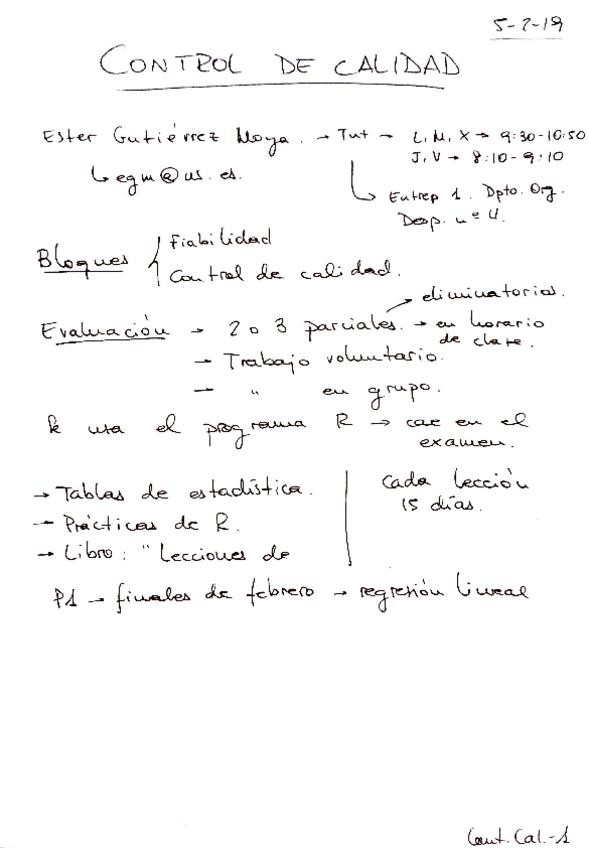 5-2-19
CONTROL DE CALIDAD
Ester Gutiérrez Moya. → Tut → L, M, X → 9:30-10:50
J, V → 8:10-9:10
↳ egm@us.es.
↳ Entrep 1. Dpto. Org.
Desp. nº 4.
Bloques { Fiabilidad
Control de calidad.
eliminatorios.
Evaluación → 2 o 3 parciales. → en horario
de clase.
→ Trabajo voluntario.
→ " en grupo.
Se usa el programa R → cae en el
examen.
→ Tablas de estadística.
→ Prácticas de R.
→ Libro: "Lecciones de
Cada lección
15 días.
P1 → finales de febrero → regresión lineal
Cont. Cal.-1